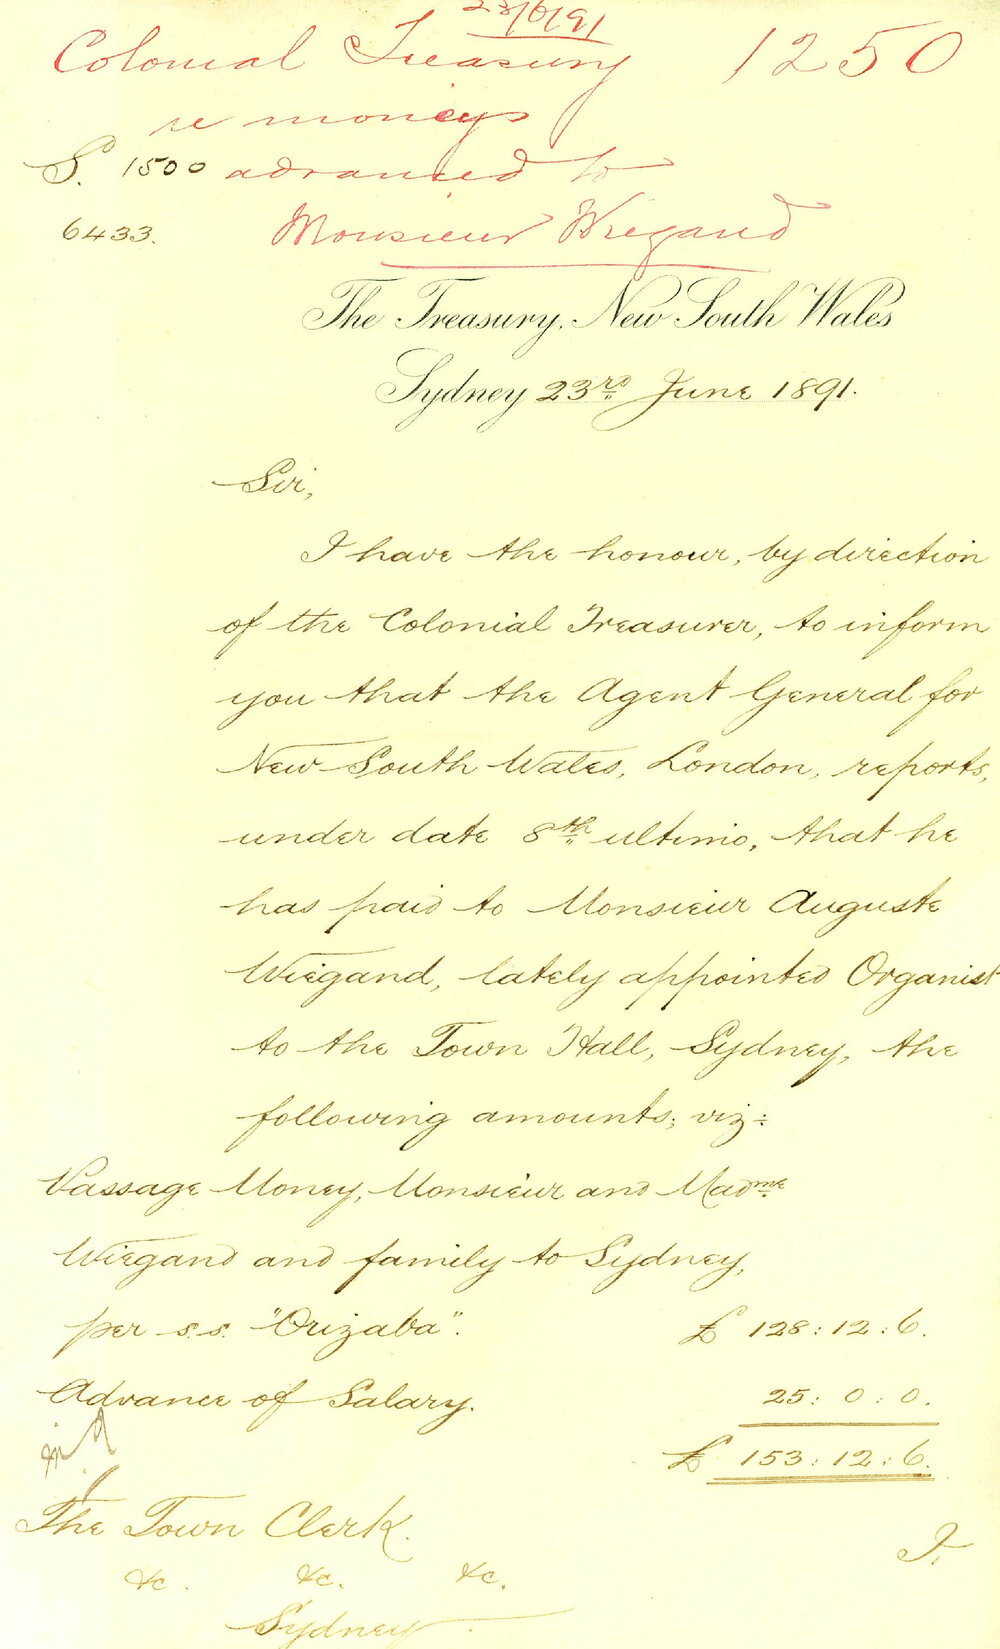 23/6/91
Colonial Treasury 1250
re moneys
S. 1500 advanced to
6433. Monsieur Wiegand
The Treasury, New South Wales
Sydney 23rd June 1891.
Sir,
I have the honour, by direction
of the Colonial Treasurer, to inform
you that the Agent General for
New South Wales, London, reports,
under date 8th ultimo, that he
has paid to Monsieur Auguste
Wiegand, lately appointed Organist
to the Town Hall, Sydney, the
following amounts; viz:
Passage Money, Monsieur and Madme
Wiegand and family to Sydney,
per s.s. "Orizaba". £ 128:12:6.
Advance of Salary. 25:0:0.
£ 153:12:6.
The Town Clerk.
&c. &c. &c.
Sydney